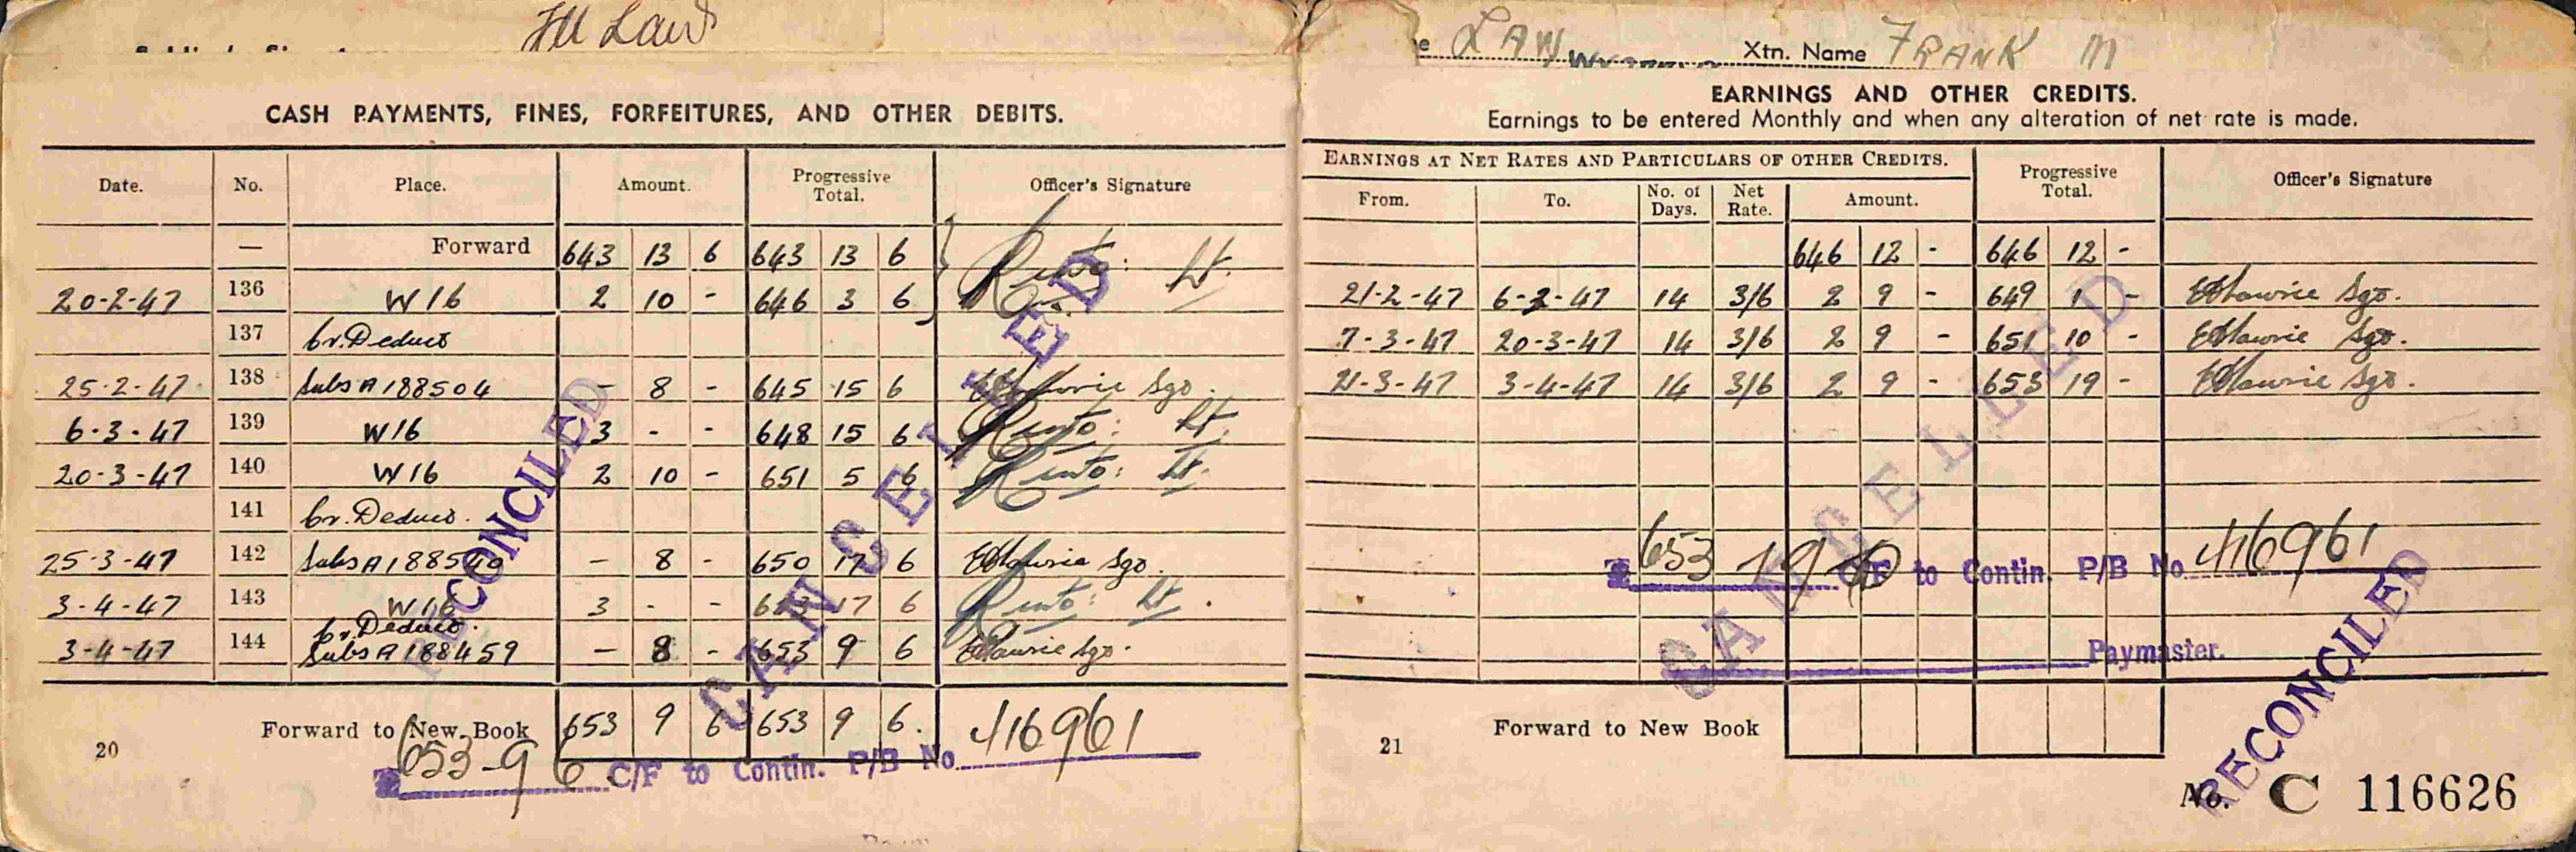 FM Law
CASH PAYMENTS, FINES, FORFEITURES, AND OTHER DEBITS.
Date. No. Place. Amount. Progressive Total. Officer's Signature
— Forward 643 13 6 643 13 6
20-2-47 136 W16 2 10 - 646 3 6 Lt.
137 Cr. Deduct
25-2-47 138 Subs A188504 - 8 - 645 15 6 Sgt.
6-3-47 139 W16 3 - - 648 15 6 Lt.
20-3-47 140 W16 2 10 - 651 5 6 Lt.
141 Cr. Deduct.
25-3-47 142 Subs A188540 - 8 - 650 17 6 Sgt.
3-4-47 143 W16 3 - - 653 17 6 Lt.
Cr. Deduct.
3-4-47 144 Subs A188459 - 8 - 653 9 6 Sgt.
Forward to New Book 653 9 6 653 9 6.
653-9 6 C/F to Contin. P/B No. 416961
20
RECONCILED
CANCELLED
LAW Xtn. Name FRANK M
EARNINGS AND OTHER CREDITS.
Earnings to be entered Monthly and when any alteration of net rate is made.
EARNINGS AT NET RATES AND PARTICULARS OF OTHER CREDITS. Progressive Total. Officer's Signature
From. To. No. of Days. Net Rate. Amount.
646 12 - 646 12 -
21-2-47 6-3-47 14 3/6 2 9 - 649 1 - Sgt.
7-3-47 20-3-47 14 3/6 2 9 - 651 10 - Sgt.
21-3-47 3-4-47 14 3/6 2 9 - 653 19 - Sgt.
653 19 0 C/F to Contin. P/B No. 416961
Paymaster.
Forward to New Book
21
CANCELLED
RECONCILED
No. C 116626